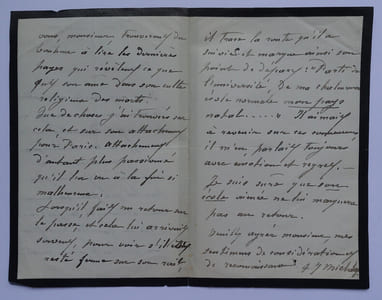 vous monsieur trouverez du
bonheur à lire les dernières
pages qui révèlent ce que
fut son âme dans son culte
religieux des morts.
Que de choses j'ai trouvées sur
cela et sur son attachement
pour Paris. attachement
d'autant plus passionné
qu'il l'a vu à la fin si
malheureux.
Lorsqu'il fait un retour sur
le passé, et cela lui arrivait
souvent, pour voir s'il est
resté ferme sur son roc,
il trace la route qu'il a
suivie et marque ainsi son
point de départ : "Parti de
l'université, de ma chaleureuse
école normale mon pays
natal..... Il aimait
à revenir sur ces souvenirs
il m'en parlait toujours
avec émotion et regret. —
Je suis sûre que son
école aimée ne lui manquera
pas en retour.
Veuillez agréer monsieur mes
sentiments de considération et
de reconnaissance. J Michelet